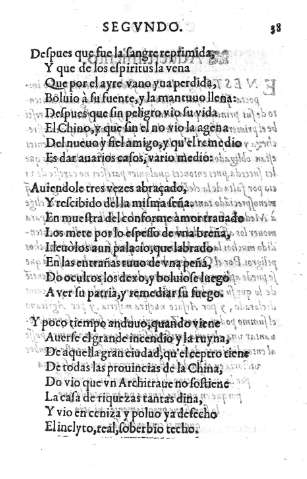 SEGVNDO. 38
Despues que fue la sangre reprimida,
Y que de los espiritus la vena
Que por el ayre vano yua perdida,
Boluio à su fuente, y la mantuuo llena:
Despues que sin peligro vio su vida
El Chino, y que sin el no vio la agena
Del nueuo y fiel amigo, y qu'el remedio
Es dar auarios casos, vario medio:
Auiendole tres vezes abraçado,
Y rescibido del la misma seña.
En muestra del conforme amor trauado
Los mete por lo espesso de vna breña,
Lleuòlos a un palacio, que labrado
En las entrañas tuuo de vna peña,
Do ocultos los dexo, y boluiose luego
A ver su patria, y remediar su fuego.
Y poco tiempo anduuo, quando viene
A verse el grande incendio y la ruyna,
De aquella gran ciudad, qu'el ceptro tiene
De todas las prouincias de la China,
Do vio que vn Architraue no sostiene
La casa de riquezas tantas dina,
Y vio en ceniza y poluo ya desecho
El inclyto, real, soberbio techo.